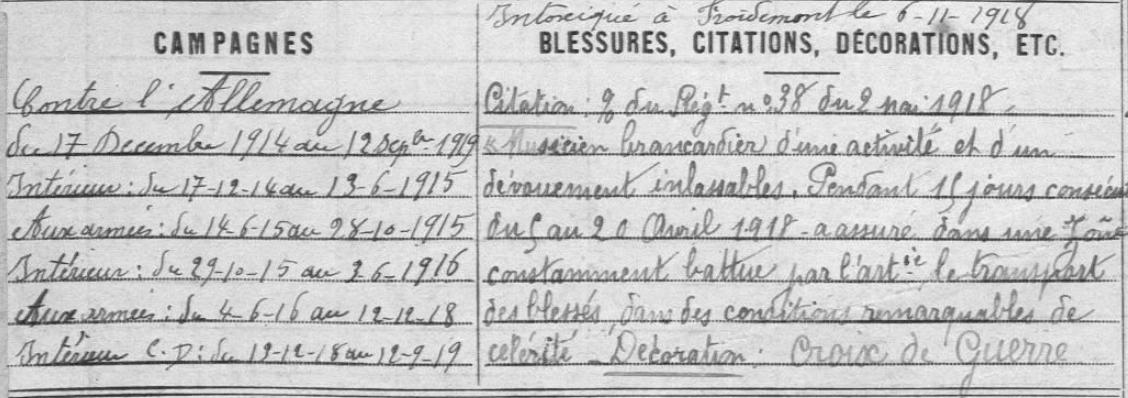 CAMPAGNES
Contre l'Allemagne
du 17 Decembre 1914 au 12 Sepbre 1919
Intérieur : du 17-12-14 au 13-6-1915
Aux armées : du 14-6-15 au 28-10-1915
Intérieur : du 29-10-15 au 3-6-1916
Aux armées : du 4-6-16 au 12-12-18
Intérieur C.D : du 13-12-18 au 12-9-19
Intoxiqué à Froidemont le 6-11-1918
BLESSURES, CITATIONS, DÉCORATIONS, ETC.
Citation : O/ du Régt n° 38 du 2 mai 1918.
« Musicien brancardier d'une activité et d'un
dévouement inlassables. Pendant 15 jours consécut
du 5 au 20 Avril 1918 - a assuré dans une zone
constamment battue par l'artie, le transport
des blessés, dans des conditions remarquables de
célérité - Décoration : Croix de Guerre